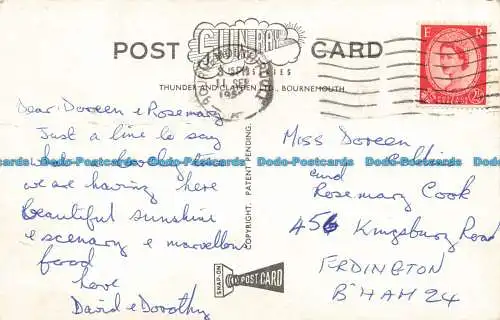 POST CARD
SUN RAY
SERIES
THUNDER AND CLAYDEN LTD., BOURNEMOUTH
BOURNEMOUTH
11 SEP
E R
Dear Doreen & Rosemary
Just a line to say
what a lovely time
we are having here
beautiful sunshine
& scenary & marvellous
food
love
David & Dorothy
COPYRIGHT. PATENT PENDING.
SNAP-ON
POST CARD
Miss Doreen
Collins
and
Rosemary Cook
456 Kingsbury Road
ERDINGTON
B'HAM 24
Dodo-Postcards Dodo-Postcards Dodo-Postcards Dodo-Postcards Dodo-Postcards